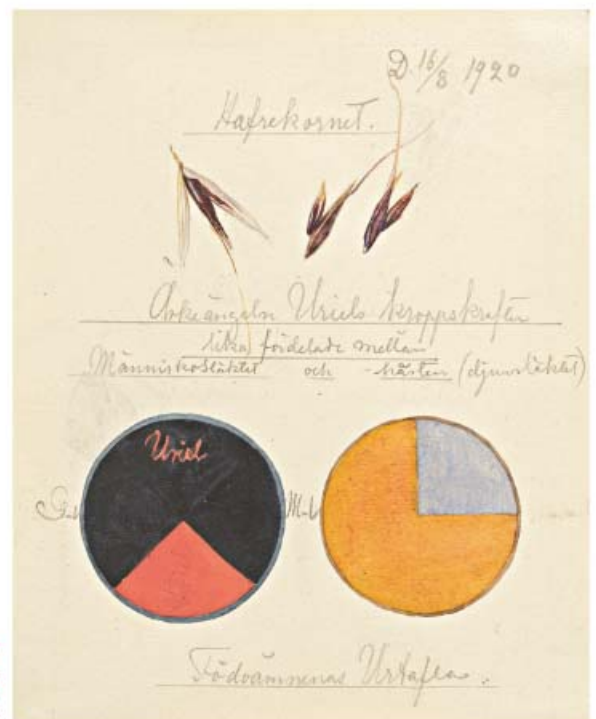 D. 16/8 1920
Hafrekornet.
Ärkeängeln Uriels kroppskrafter
lika fördelade mellan
Människosläktet och hästen (djursläktet)
Uriel
G-l M-l
Födoämnenas Urtaflor.